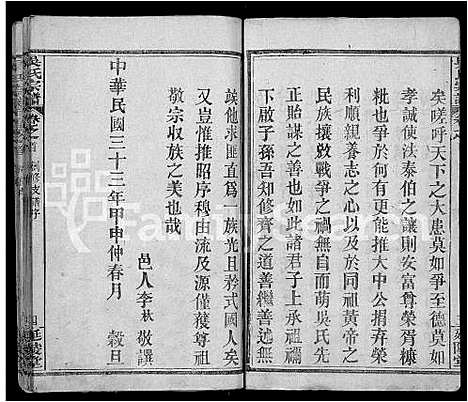 矣嗟呼天下之大患莫如爭至德莫如
孝誠使法泰伯之讓則安富尊榮胥糠
粃也爭於何有更能推大中公捐弃榮
利以養親養志之心以及於同祖黃帝之
民族攘敓戰爭之禍自無而萌吳氏先
正貽謀之善也如此諸君子上承祖德
下啟子孫吾知修齊之道善繼善述無
竢他求匪直爲一族光且矜式國人矣
又豈惟推昭序穆由流及源僅得尊祖
敬宗收族之美也哉
邑人李 敬譔
中華民國三十三年甲申仲春月 穀旦
吳氏宗譜 卷之首
四 延陵堂
FamilySearch